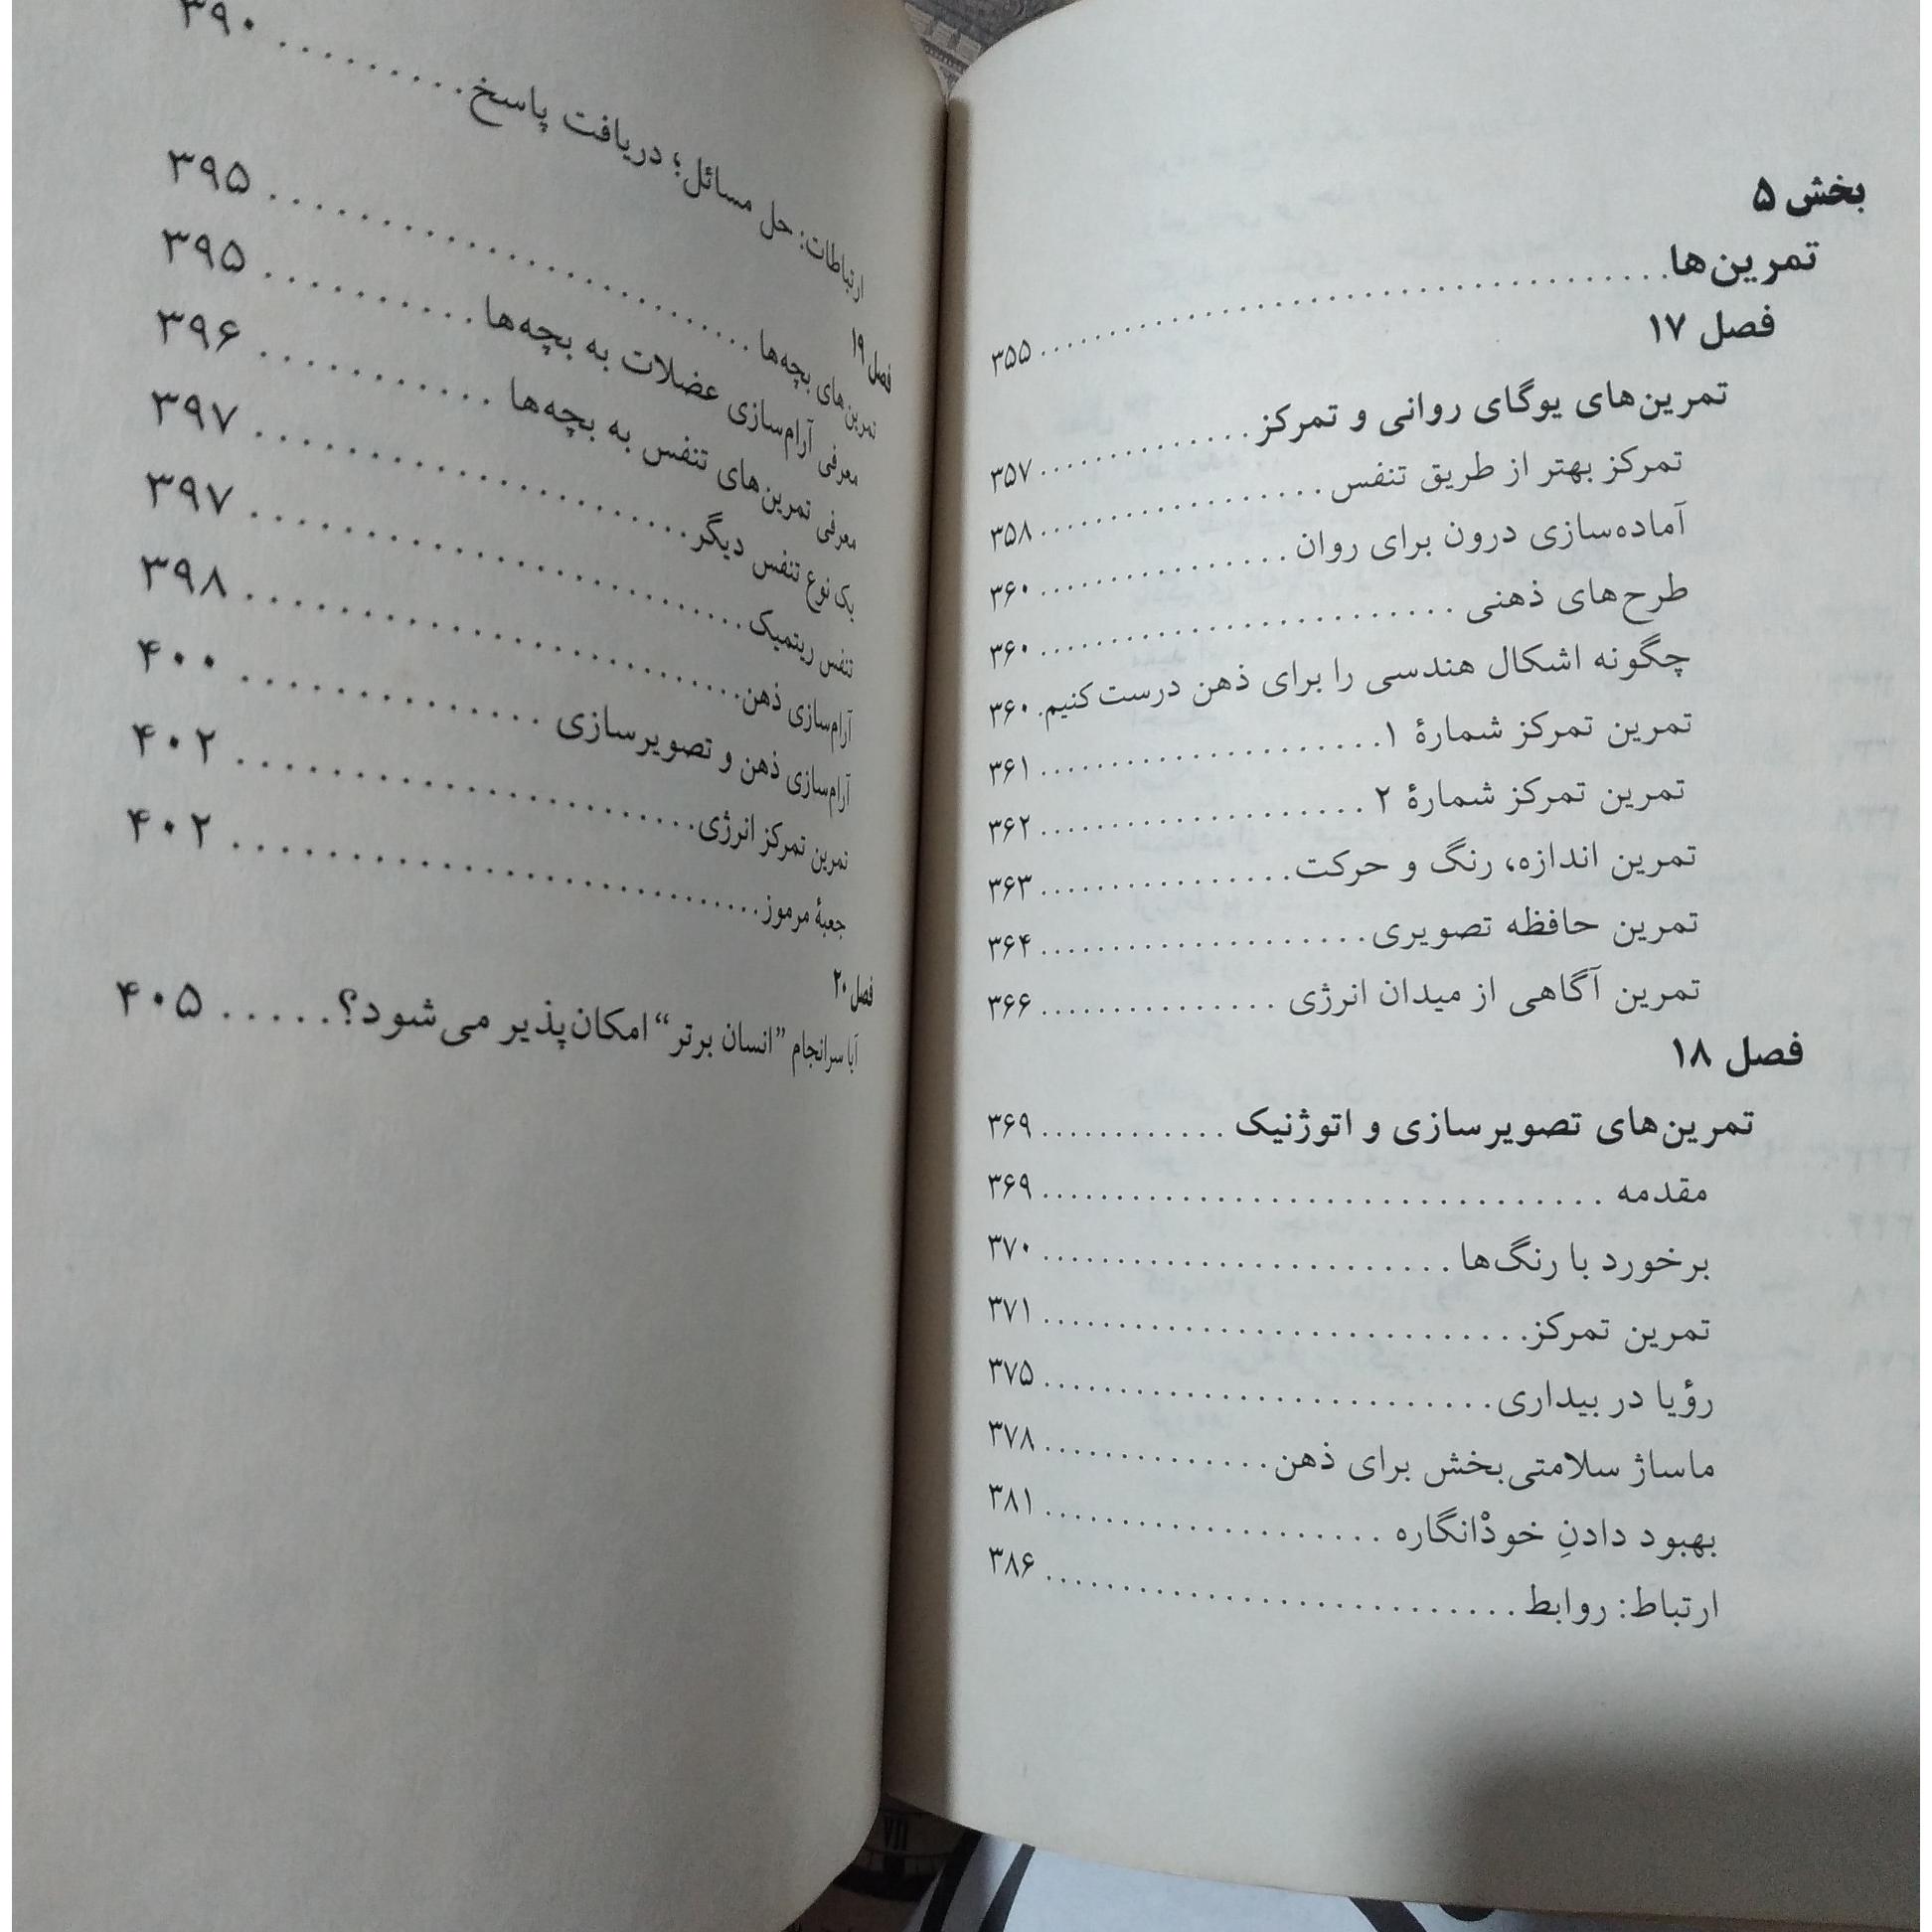 بخش ۵
تمرین‌ها.............................. ۳۵۵
فصل ۱۷
تمرین‌های یوگای روانی و تمرکز ............ ۳۵۷
تمرکز بهتر از طریق تنفس .................. ۳۵۸
آماده‌سازی درون برای روان ................ ۳۶۰
طرح‌های ذهنی .......................... ۳۶۰
چگونه اشکال هندسی را برای ذهن درست کنیم. ۳۶۰
تمرین تمرکز شمارهٔ ۱...................... ۳۶۱
تمرین تمرکز شمارهٔ ۲ ..................... ۳۶۲
تمرین اندازه، رنگ و حرکت................ ۳۶۳
تمرین حافظه تصویری..................... ۳۶۴
تمرین آگاهی از میدان انرژی ............... ۳۶۶
فصل ۱۸
تمرین‌های تصویرسازی و اتوژنیک ............ ۳۶۹
مقدمه ................................ ۳۶۹
برخورد با رنگ‌ها ........................ ۳۷۰
تمرین تمرکز............................ ۳۷۱
رؤیا در بیداری.......................... ۳۷۵
ماساژ سلامتی‌بخش برای ذهن............. ۳۷۸
بهبود دادنِ خودْانگاره .................... ۳۸۱
ارتباط: روابط........................... ۳۸۶
ارتباطات: حل مسائل؛ دریافت پاسخ......... ۳۹۰
فصل ۱۹
تمرین‌های بچه‌ها .......................... ۳۹۵
معرفی آرام‌سازی عضلات به بچه‌ها .......... ۳۹۵
معرفی تمرین‌های تنفس به بچه‌ها ........... ۳۹۶
یک نوع تنفس دیگر....................... ۳۹۷
تنفس ریتمیک.......................... ۳۹۷
آرام‌سازی ذهن.......................... ۳۹۸
آرام‌سازی ذهن و تصویرسازی .............. ۴۰۰
تمرین تمرکز انرژی....................... ۴۰۲
جعبهٔ مرموز............................ ۴۰۲
فصل ۲۰
آیا سرانجام ”انسان برتر“ امکان‌پذیر می‌شود؟...... ۴۰۵
VII